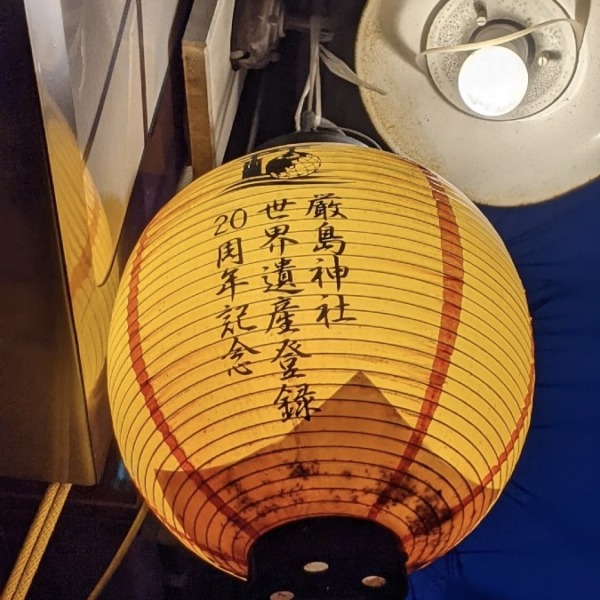 厳島神社
世界遺産登録
20周年記念